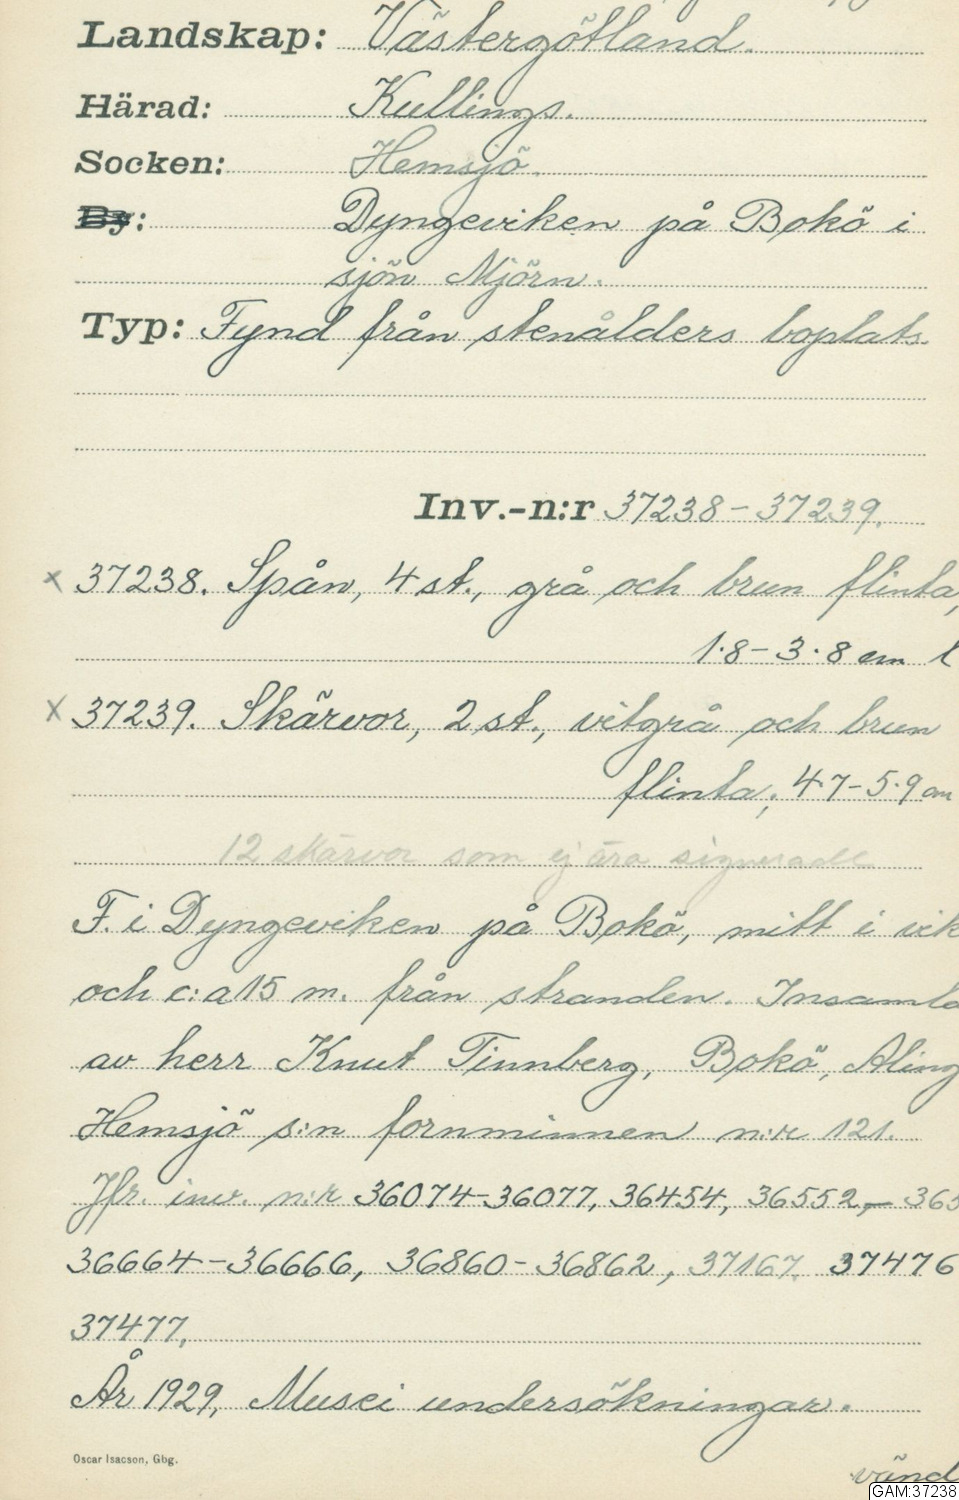 Landskap: Västergötland.
Härad: Kullings.
Socken: Hemsjö.
By: Dyngeviken på Bokö i
sjön Mjörn.
Typ: Fynd från stenålders boplats.
Inv.-n:r 37238-37239.
x 37238. Spån, 4 st., grå och brun flinta,
1·8-3·8 cm l
x 37239. Skärvor, 2 st., vitgrå och brun
flinta; 4·7-5·9 cm
12 skärvor som ej äro signerade
F. i Dyngeviken på Bokö, mitt i vik
och c:a 15 m. från stranden. Insamla
av herr Knut Tinnberg, Bokö, Aling
Hemsjö s:n fornminnen n:r 121.
Jfr. inv. n:r 36074-36077, 36454, 36552,- 365
36664-36666, 36860-36862, 37167. 37476
37477.
År 1929, Musei undersökningar.
Oscar Isacson, Gbg.
vänd
GAM:37238